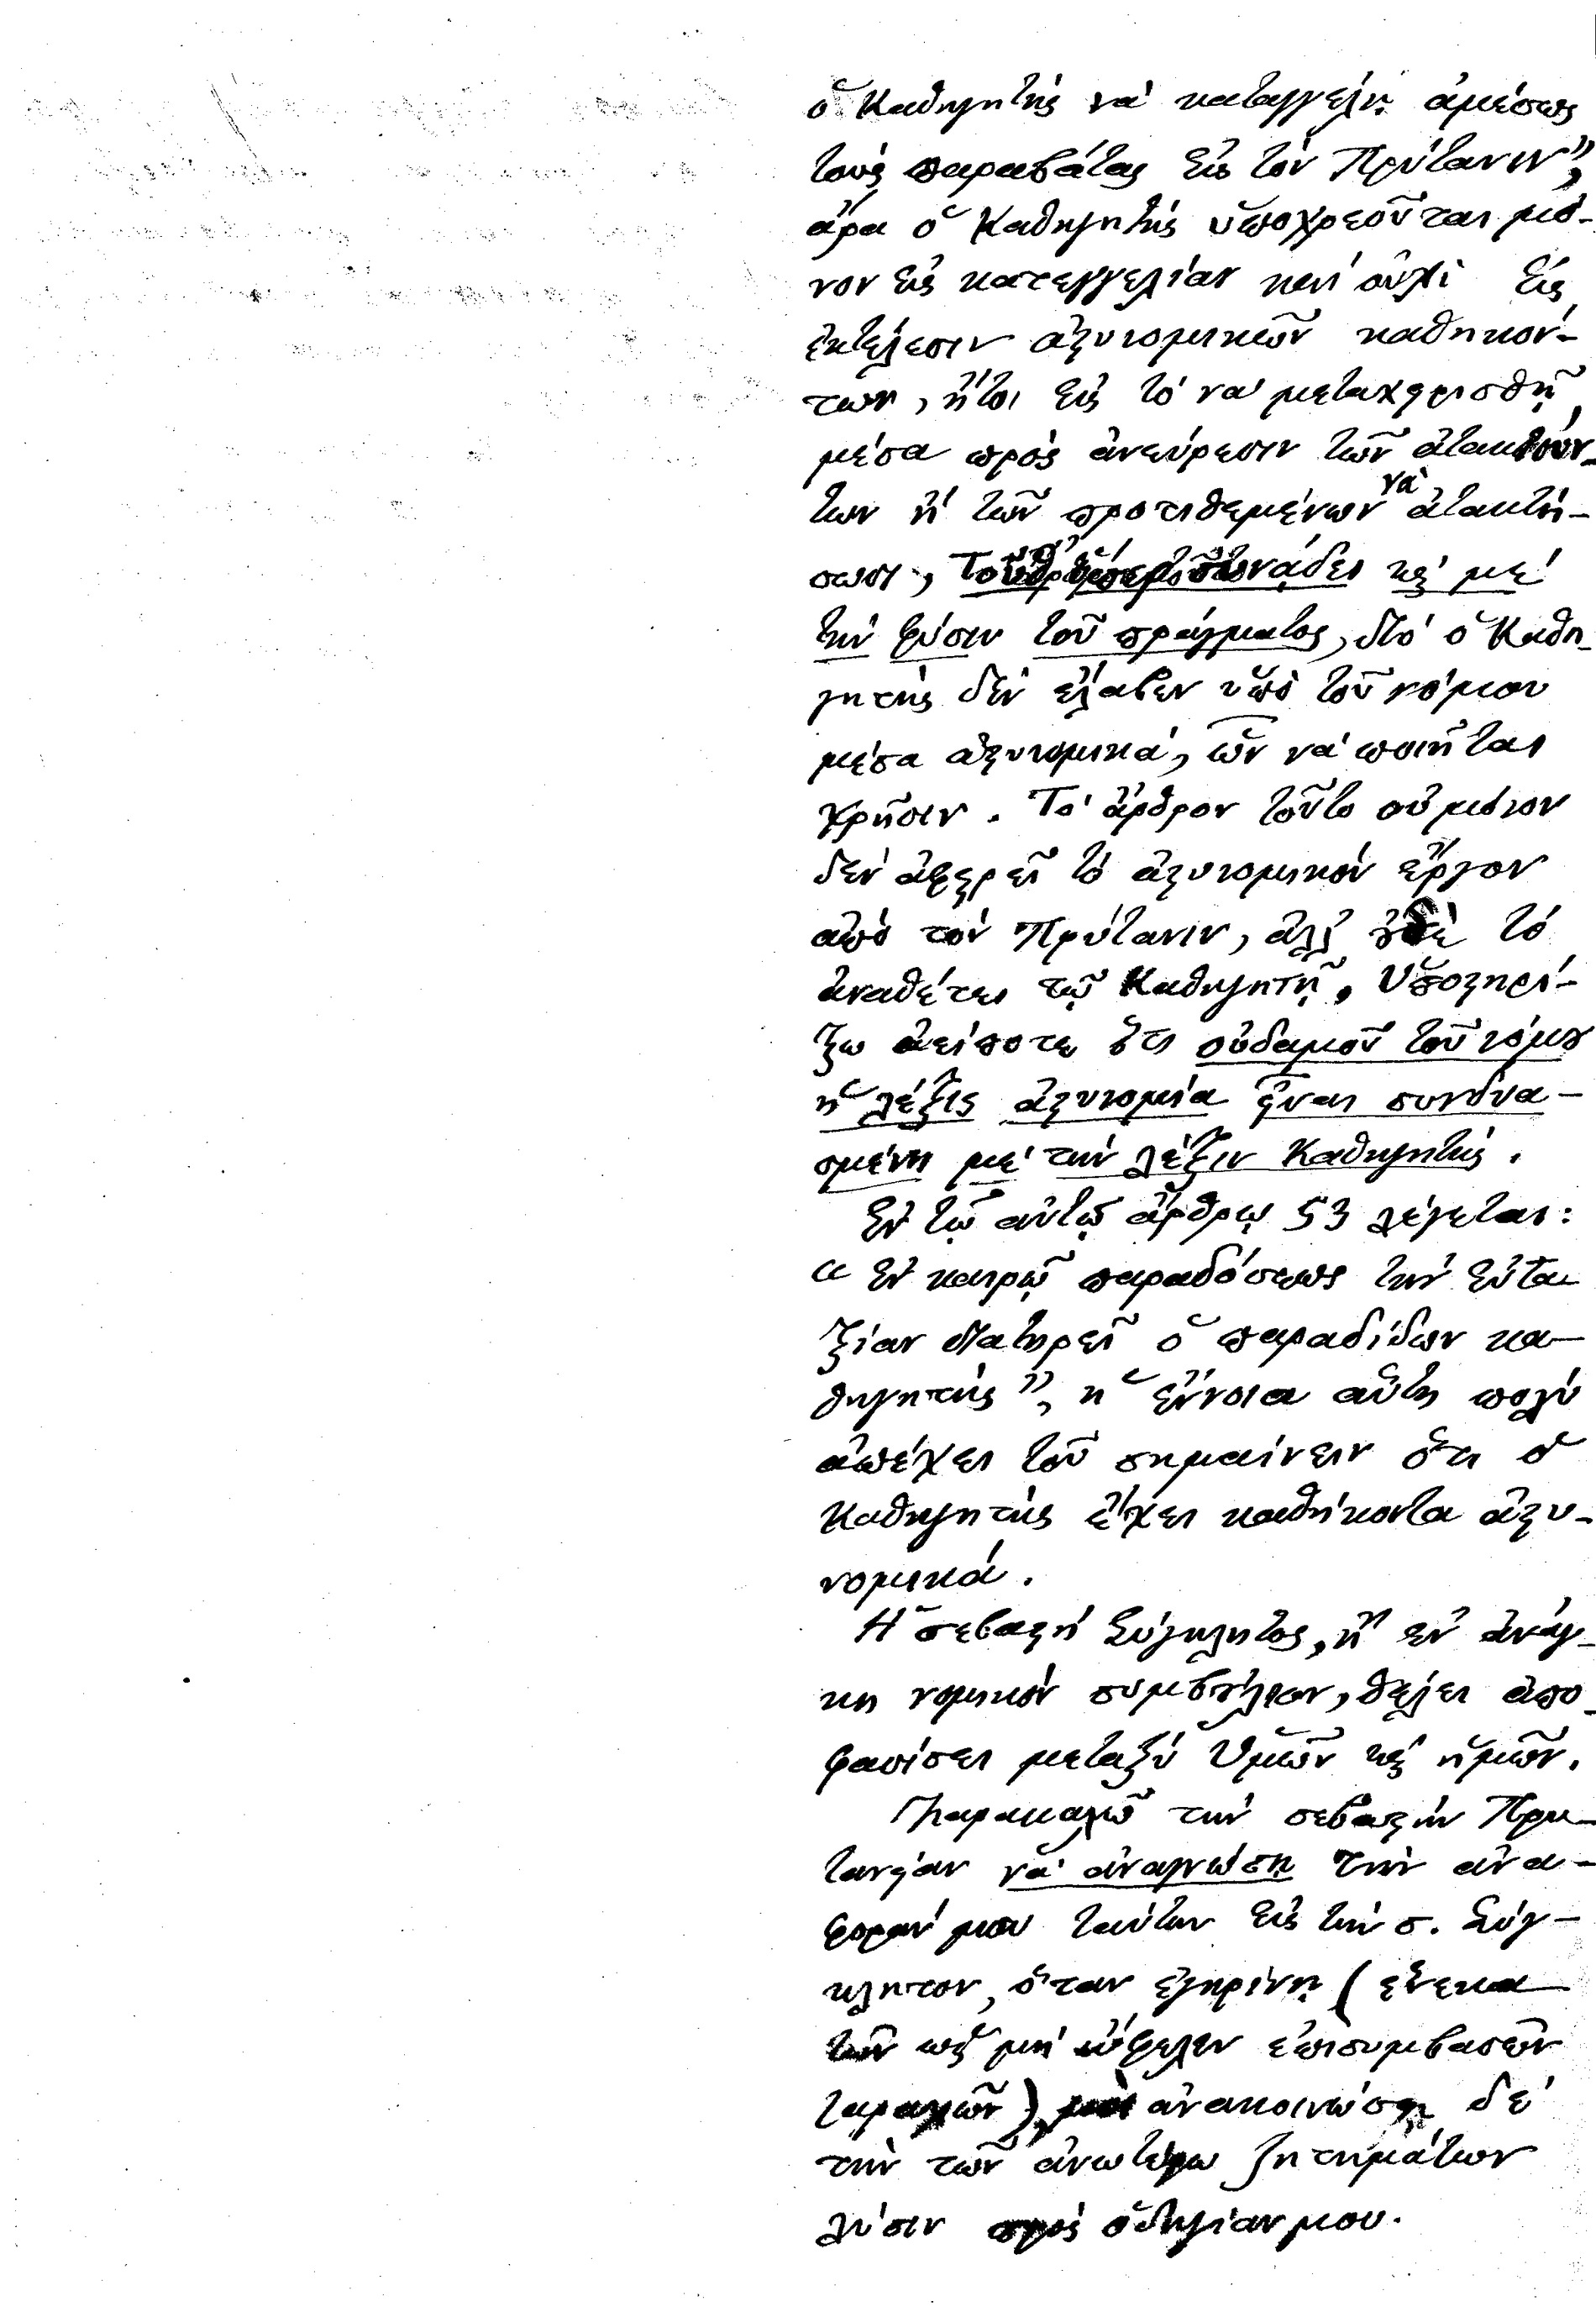 ὁ Καθηγητὴς νὰ καταγγέλῃ ἀμέσως
τοὺς παραβάτας εἰς τὸν Πρύτανιν”,
ἄρα ὁ Καθηγητὴς ὑποχρεοῦται μό-
νον εἰς καταγγελίαν καὶ οὐχὶ εἰς
ἐκτέλεσιν ἀστυνομικῶν καθηκόν-
των, ἤτοι εἰς τὸ νὰ μεταχειρισθῇ
μέσα πρὸς ἀνεύρεσιν τῶν ἀτακτούν-
των ἢ τῶν προτιθεμένων νὰ ἀτακτή-
σωσι, συνάδει κὲ μὲ
τὴν φύσιν τοῦ πράγματος, διὸ ὁ Καθη-
γητὴς δὲν ἔλαβεν ὑπὸ τοῦ νόμου
μέσα ἀστυνομικά, ὧν νὰ ποιῆται
χρῆσιν. Τὸ ἄρθρον τοῦτο οὐ μόνον
δὲν ἀφαιρεῖ τὸ ἀστυνομικὸν ἔργον
ἀπὸ τὸν Πρύτανιν, ἀλλ' οὐδὲ τὸ
ἀναθέτει τῷ Καθηγητῇ. Ὑποστηρί-
ζω ἀείποτε ὅτι οὐδαμοῦ τοῦ νόμου
ἡ λέξις ἀστυνομία εἶναι συνδυα-
σμένη μὲ τὴν λέξιν Καθηγητής.
Ἐν τῷ αὐτῷ ἄρθρῳ 53 λέγεται:
“Ἐν καιρῷ παραδόσεως τὴν εὐτα
ξίαν διατηρεῖ ὁ παραδίδων κα-
θηγητής”, ἡ ἔννοια αὕτη πολὺ
ἀπέχει τοῦ σημαίνειν ὅτι ὁ
Καθηγητὴς ἔχει καθήκοντα ἀστυ-
νομικά.
Ἡ σεβαστὴ Σύγκλητος, ἢ ἐν ἀνάγ-
κῃ νομικὸν συμβούλιον, θέλει ἀπο-
φασίσει μεταξὺ Ὑμῶν κὲ ἡμῶν.
Παρακαλῶ τὴν σεβαστὴν Πρυ-
τανείαν νὰ ἀναγνώσῃ τὴν ἀνα-
φοράν μου ταύτην εἰς τὴν σ. Σύγ-
κλητον, ὅταν ἐγκρίνῃ (ἕνεκα
τῶν μὴ ὤφελεν ἐπισυμβασῶν
ταραχῶν), ἀνακοινώσῃ δὲ
τὴν τῶν ἀνωτέρω ζητημάτων
λύσιν πρὸς ὁδηγίαν μου.